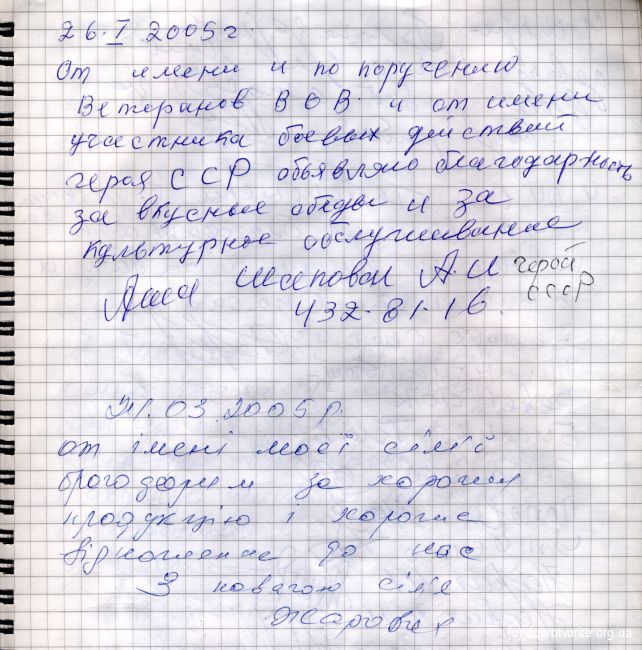 26.I 2005 г.
От имени и по поручению
Ветеранов ВОВ и от имени
участника боевых действий
героя ССР объявляю благодарность
за вкусные обеды и за
культурное обслуживание
Шаповал А.И герой
СССР
432-81-16.
21.03.2005 р.
от імені моєї сім'ї
за хорошую
продукцію і хороше
відношеніє до нас
З повагою сім'я
dobrotvorite.org.ua